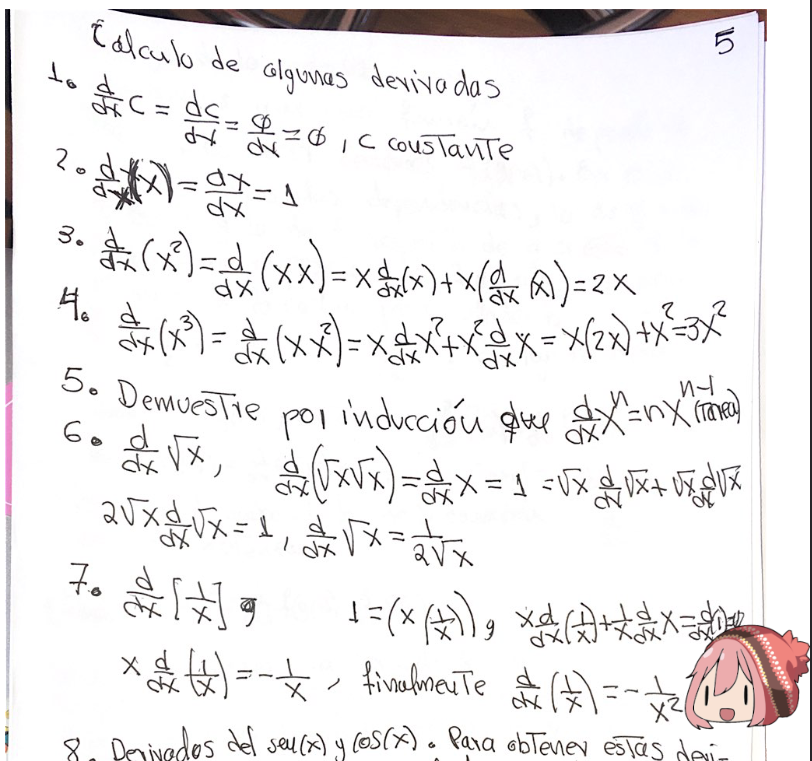 5
Cálculo de algunas derivadas
1. d/dx C = dc/dx = φ/dx = φ, C constante
2. d/dx (x) = dx/dx = 1
3. d/dx (x²) = d/dx (xx) = x d/dx (x) + x (d/dx (x)) = 2x
4. d/dx (x³) = d/dx (xx²) = x d/dx x² + x² d/dx x = x(2x) + x² = 3x²
5. Demuestre por inducción que d/dx xⁿ = nxⁿ⁻¹ (Tarea)
6. d/dx √x, d/dx (√x√x) = d/dx x = 1 = √x d/dx √x + √x d/dx √x
2√x d/dx √x = 1, d/dx √x = 1/2√x
7. d/dx [1/x] , 1 = (x (1/x)), x d/dx (1/x) + 1/x d/dx x = d/dx (1) =
x d/dx (1/x) = -1/x, finalmente d/dx (1/x) = -1/x²
8. Derivadas del sen(x) y cos(x). Para obtener estas deri-